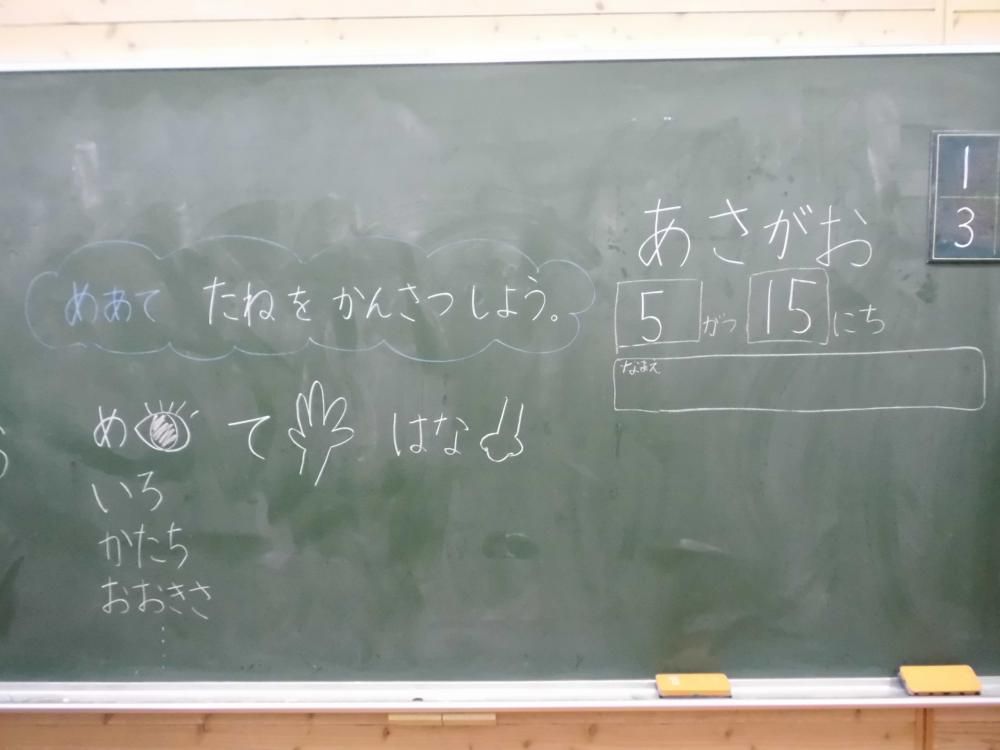 めあて たねを かんさつしよう。
め て はな
いろ
かたち
おおきさ
あさがお
5がつ15にち
なまえ
1
3